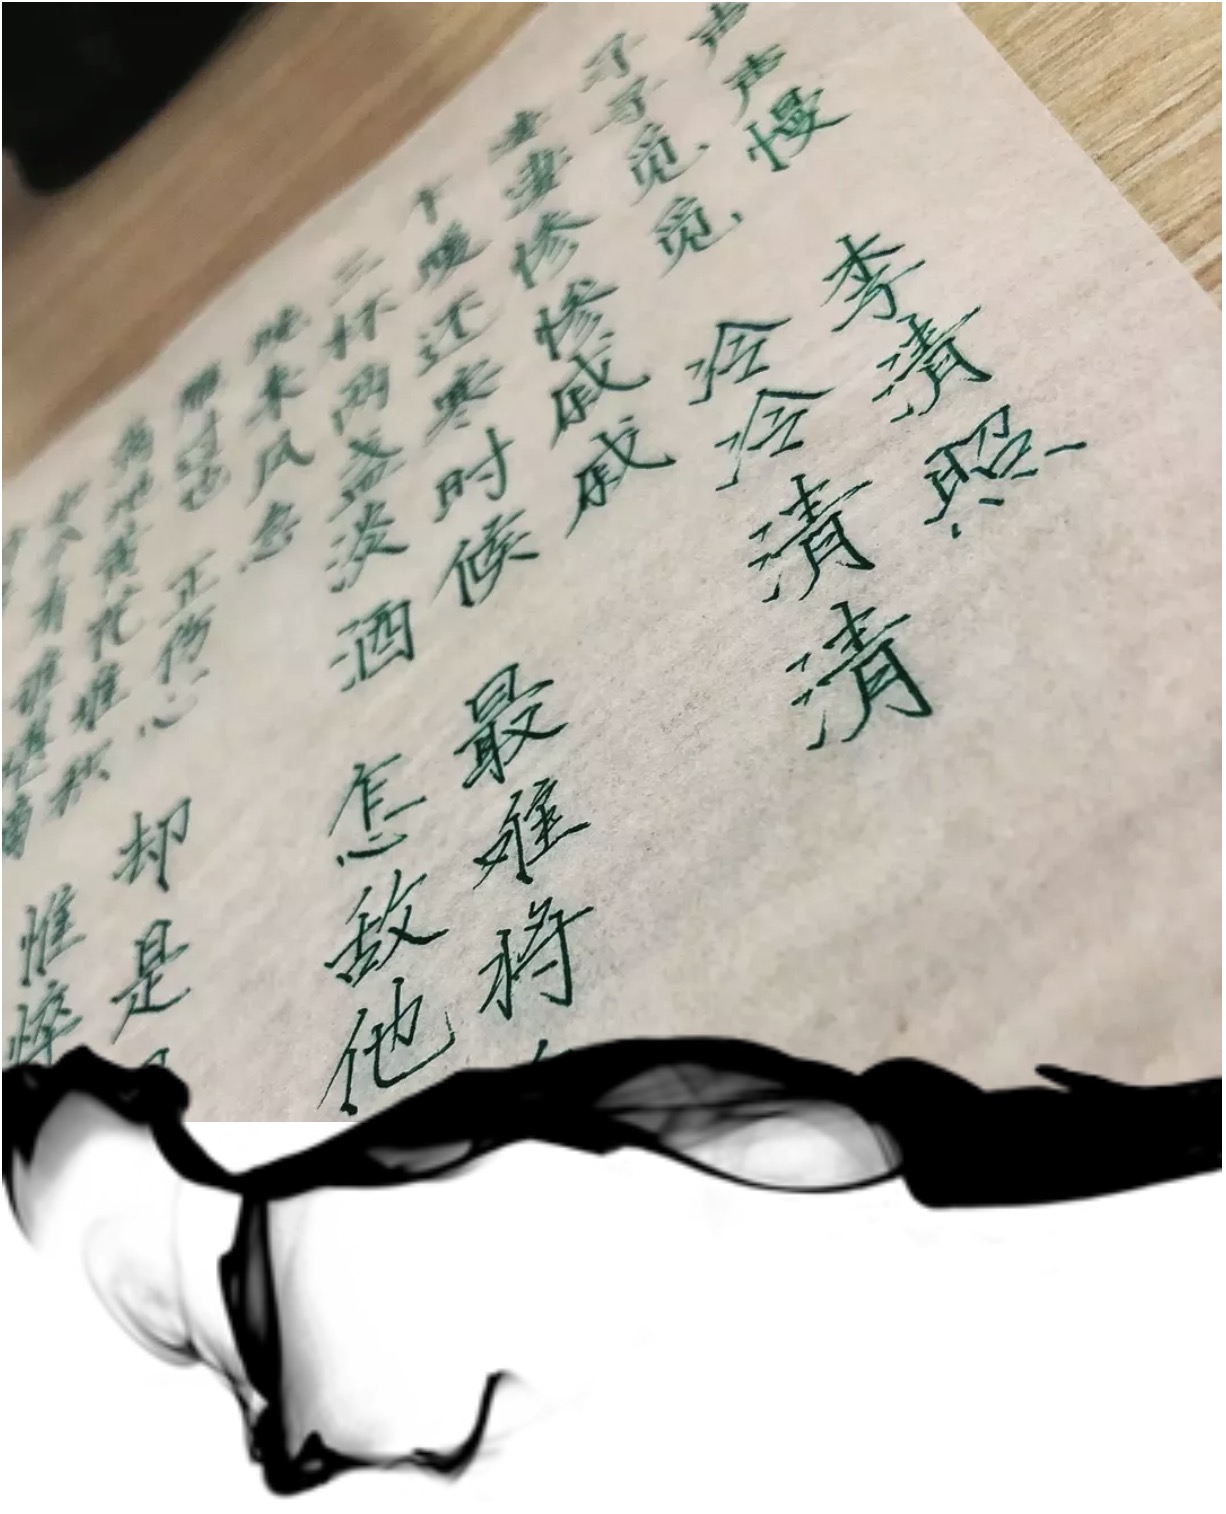 声声慢 李清照
寻寻觅觅，冷冷清清
凄凄惨惨戚戚
乍暖还寒时候 最难将
三杯两盏淡酒 怎敌他
晚来风急
雁过也 正伤心 却是
满地黄花堆积 憔悴
如今有谁堪摘